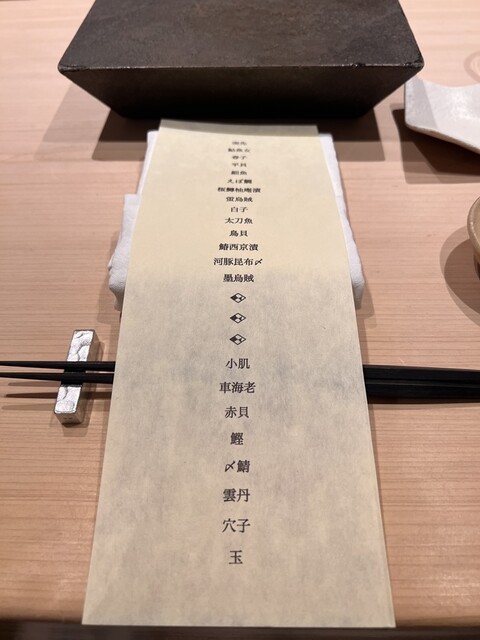 鮎魚女
春子
平貝
鮑
えぼ鯛
桜鱒柚庵漬
蛍烏賊
白子
太刀魚
鳥貝
鰆西京漬
河豚昆布〆
墨烏賊
小肌
車海老
赤貝
鰹
〆鯖
雲丹
穴子
玉